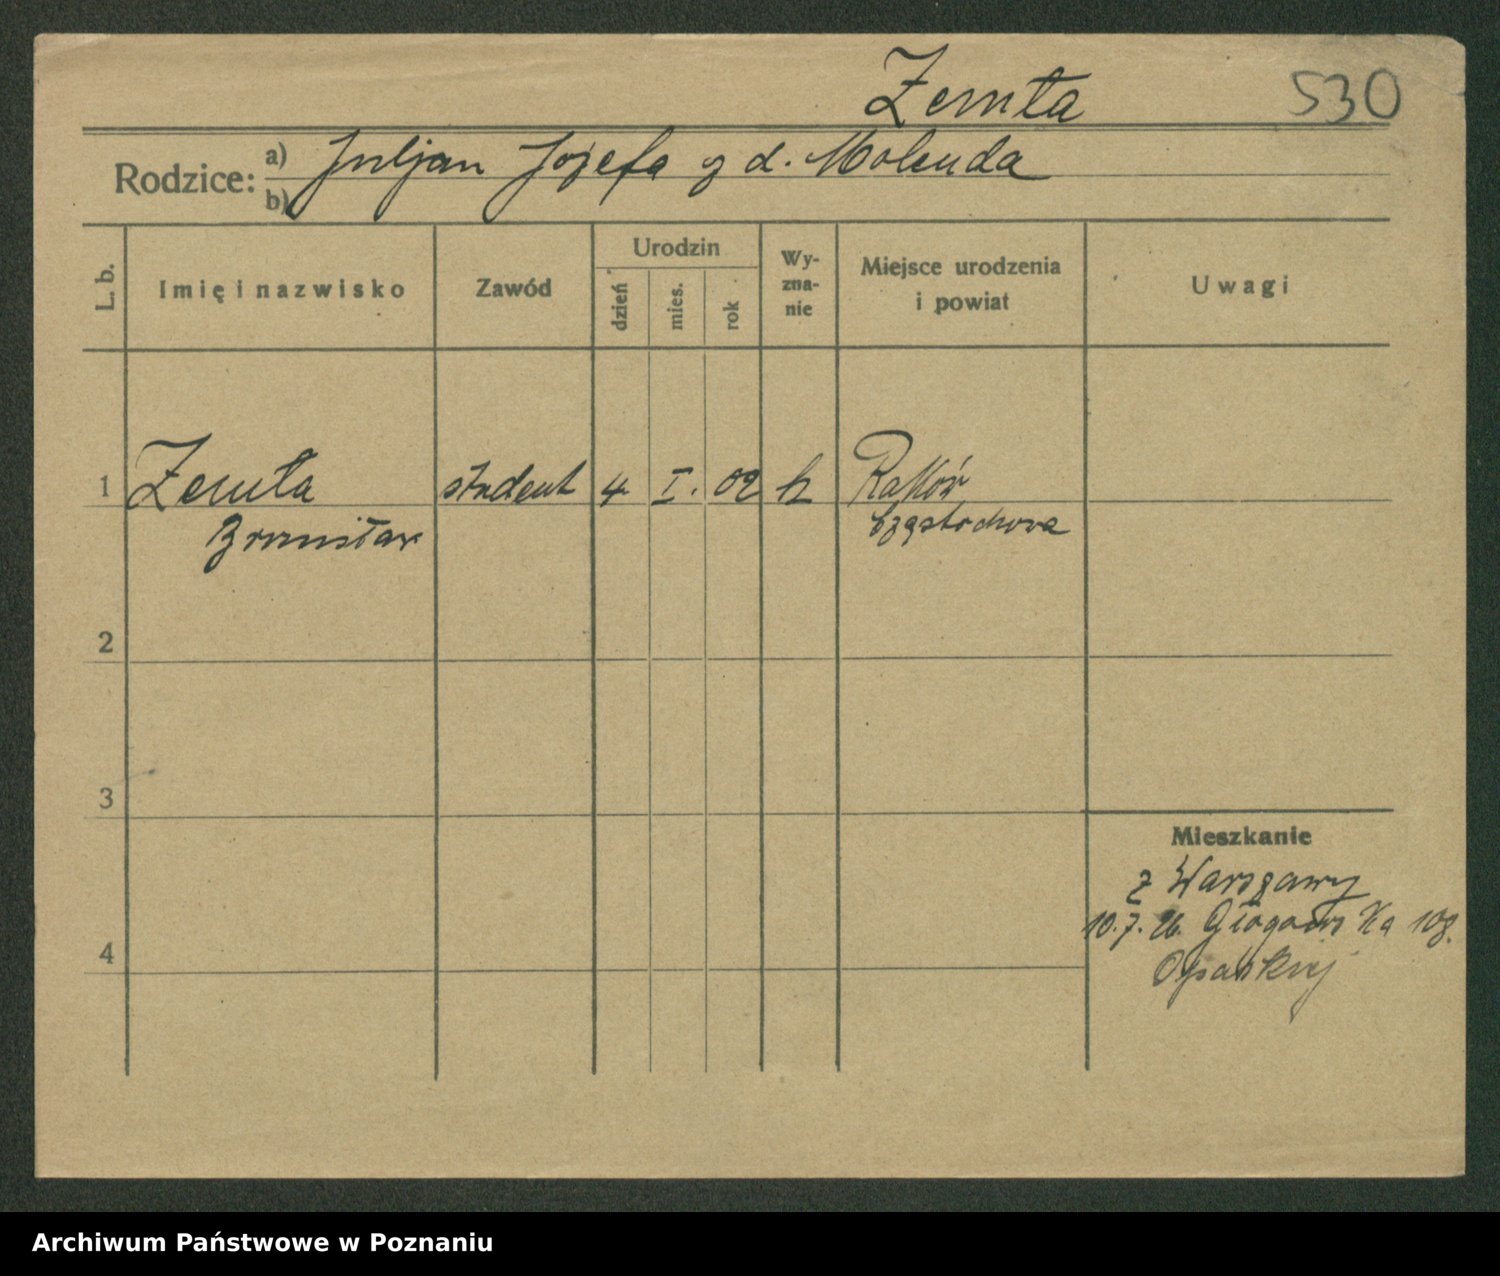 Zemła 530
Rodzice: a) Juljan Józefa z d. Molenda
b)
L. b. Imię i nazwisko Zawód Urodzin dzień mies. rok Wyznanie Miejsce urodzenia i powiat Uwagi
1 Zemła student 4 I. 02 k Raków
Bronisław Częstochowa
2
3
Mieszkanie
z Warszawy
10.7.26. Głogowska 108.
4
Archiwum Państwowe w Poznaniu